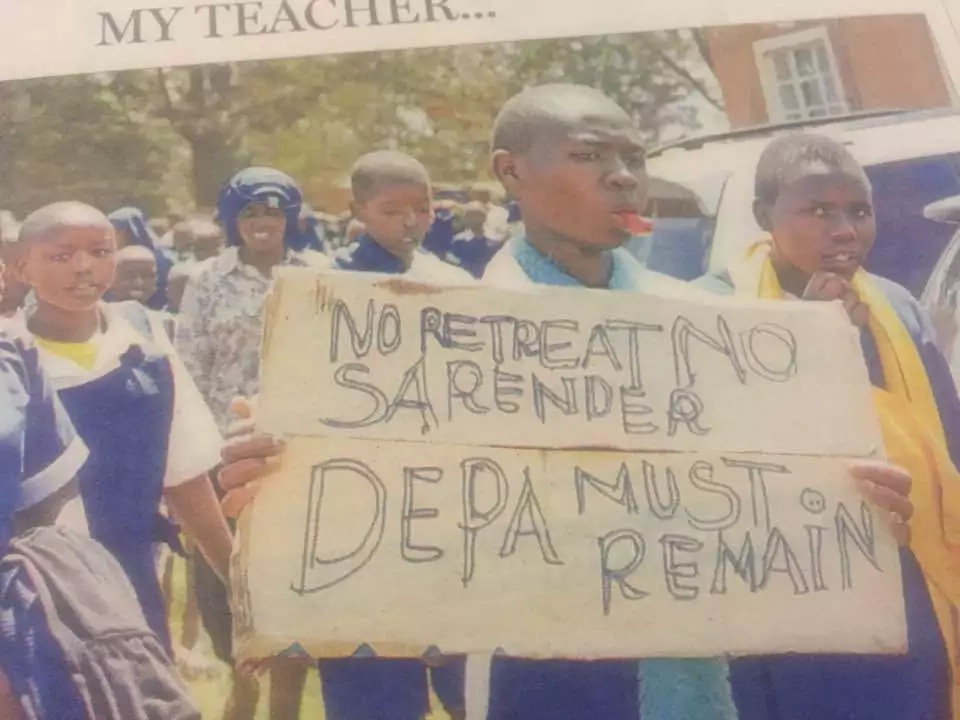 MY TEACHER...
NO RETREAT NO
SARENDER
DEPA MUST
REMAIN